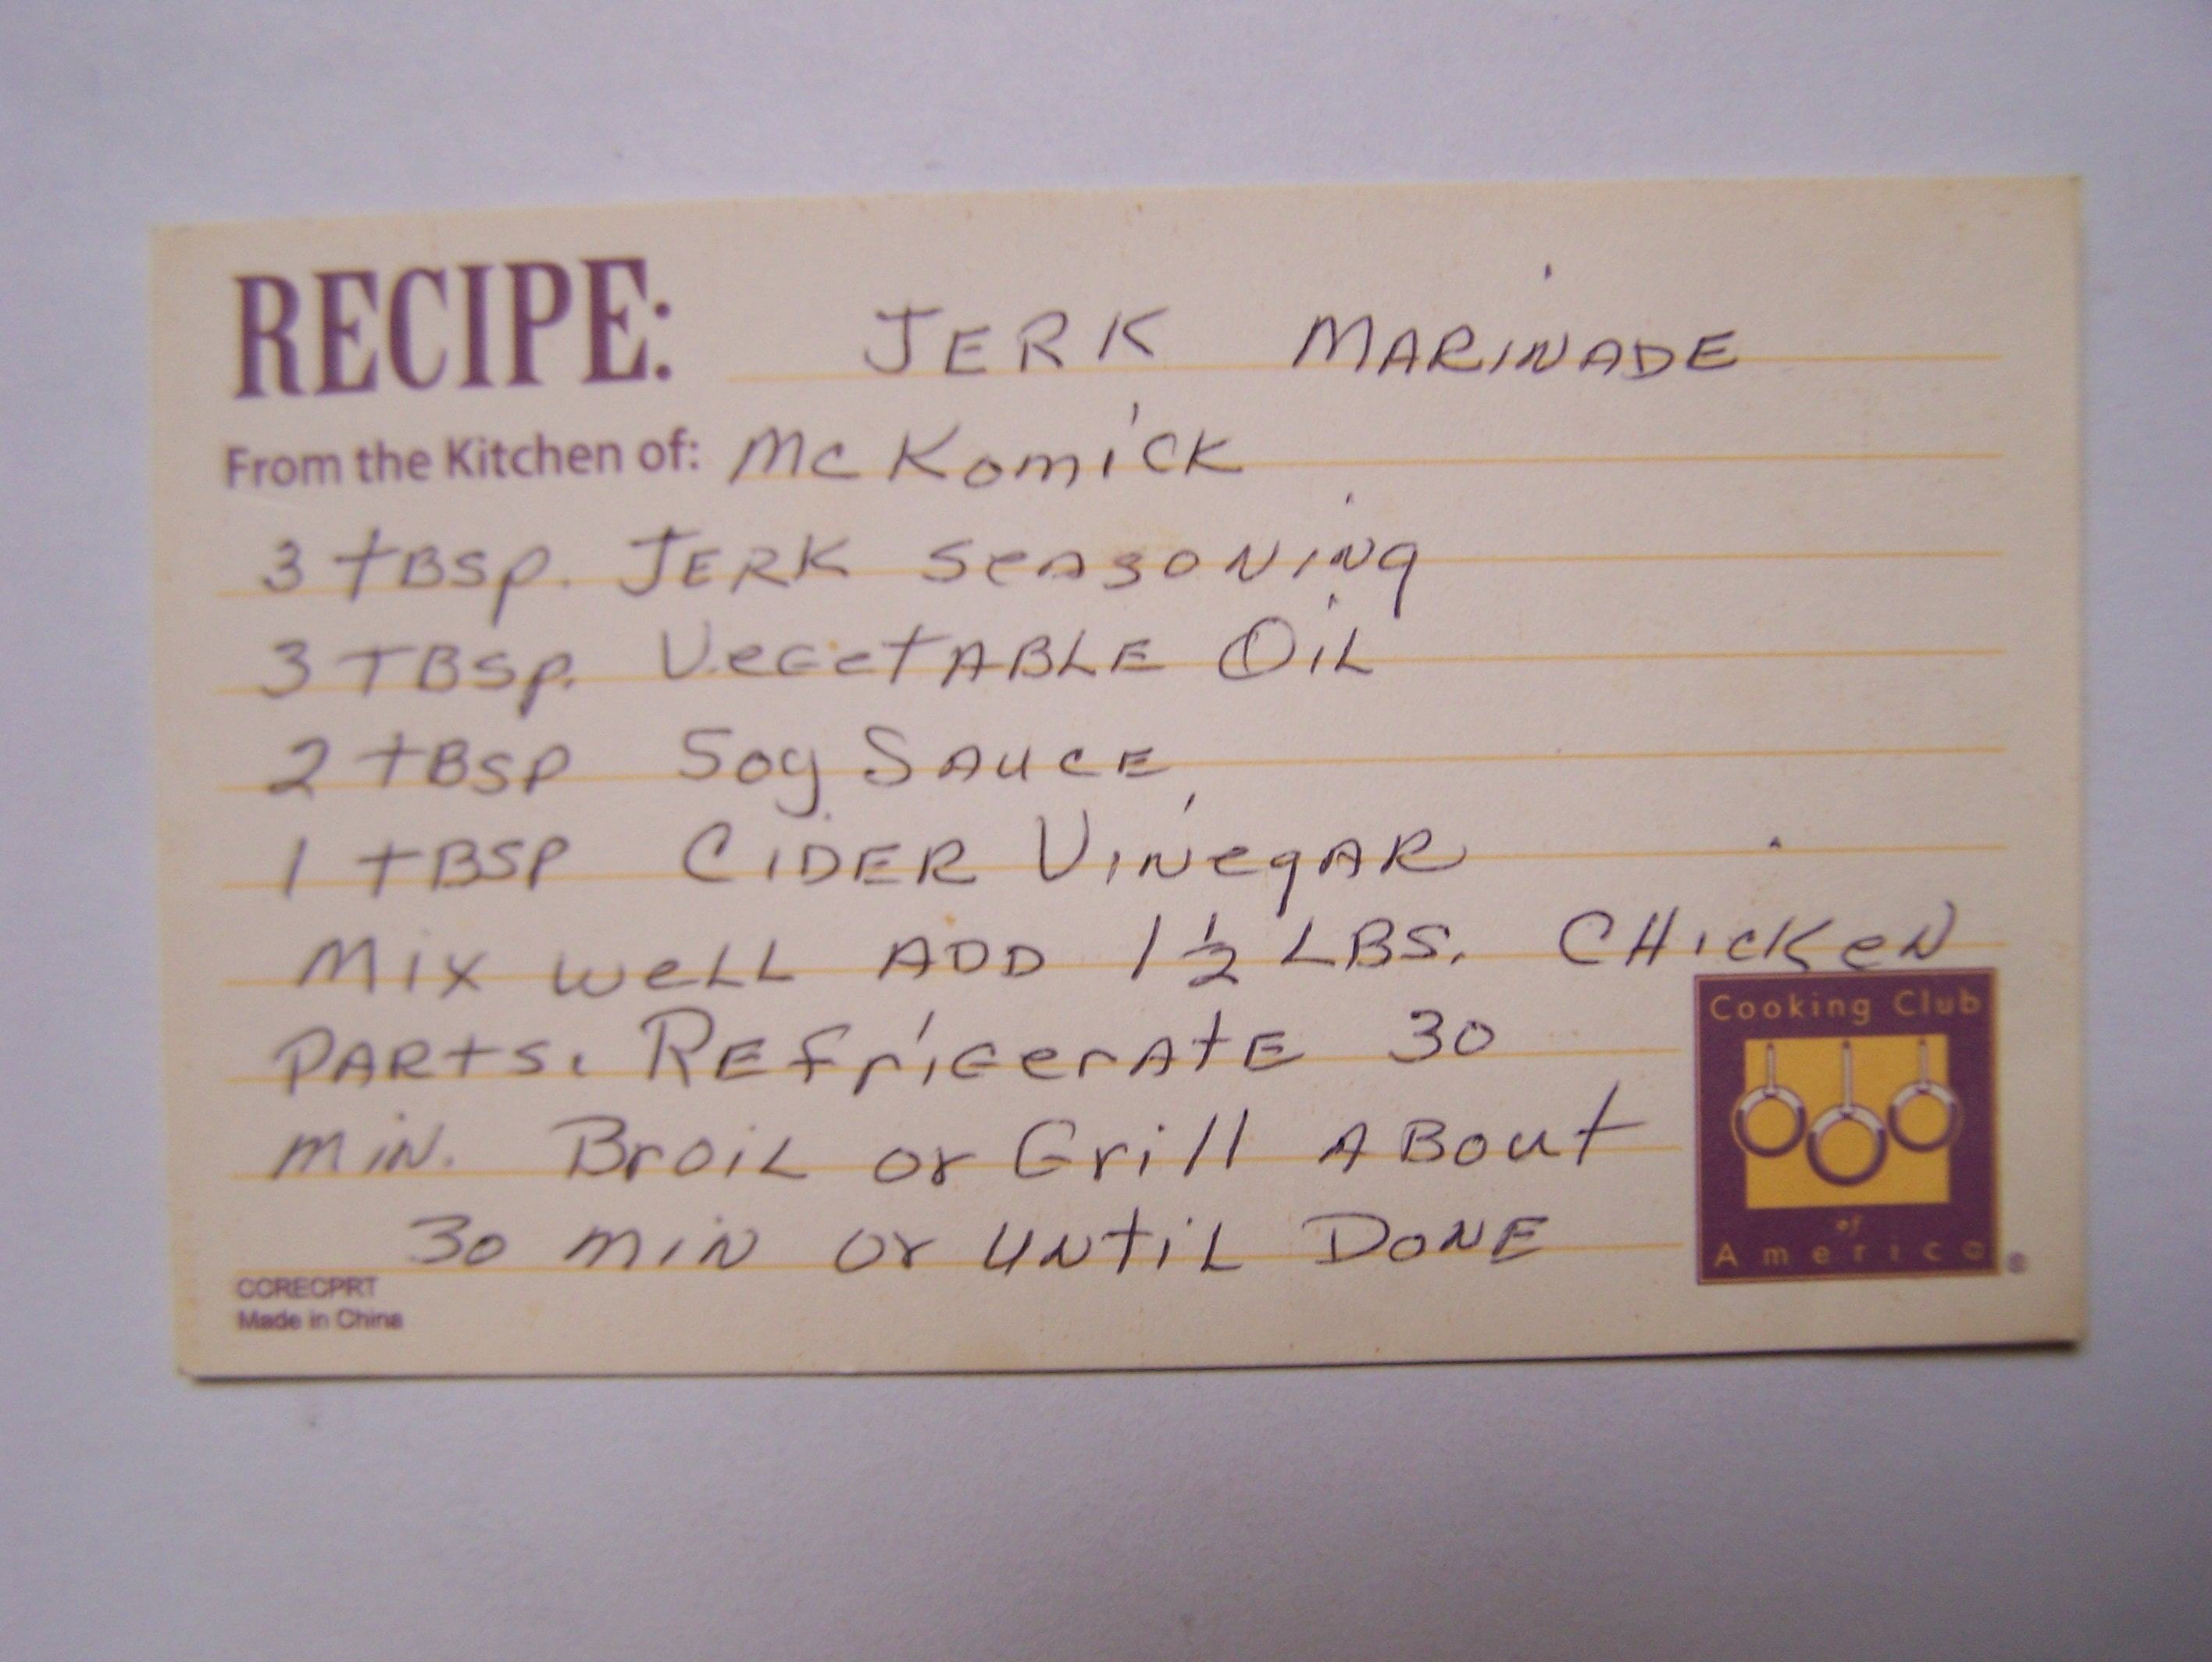 RECIPE: JERK MARINADE
From the Kitchen of: McKomick
3 tBsp. JERK SeasoNiNg
3 TBsp. VegetABLE OiL
2 tBsp Soy SAuCE
1 tBSP CiDER ViNegAR
Mix weLL ADD 1 1/2 LBS. CHickeN
PARtS. REfrigerAtE 30
miN. BroiL or Grill ABout
30 miN or uNtiL DoNE
Cooking Club
of
America®
CCRECPRT
Made in China